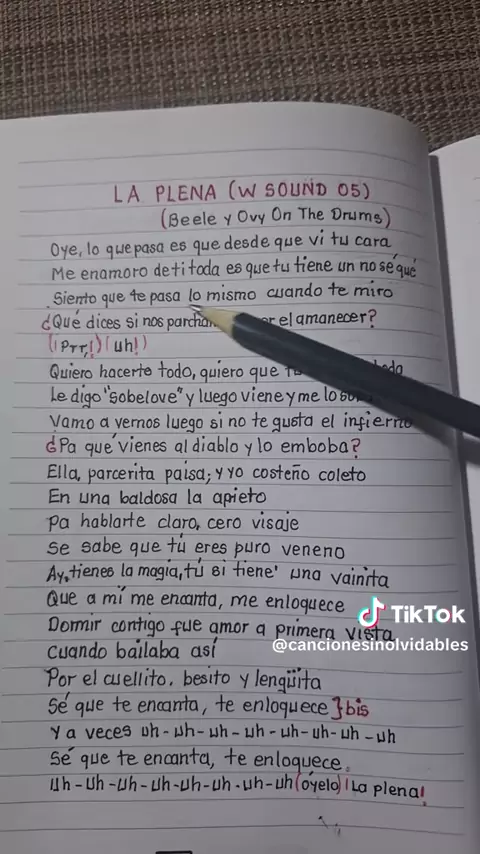 LA PLENA (W SOUND 05)
(Beele y Ovy On The Drums)
Oye, lo que pasa es que desde que vi tu cara
Me enamoro de ti toda es que tu tiene un no sé qué
Siento que te pasa lo mismo cuando te miro
¿Qué dices si nos parcha el amanecer?
(¡Prr,!)(uh!)
Quiero hacerte todo, quiero que
Le digo "sobelove" y luego viene y me lo
Vamo a vernos luego si no te gusta el infierno
¿Pa qué vienes al diablo y lo emboba?
Ella, parcerita paisa; y yo costeño coleto
En una baldosa la apieto
Pa hablarte claro, cero visaje
Se sabe que tú eres puro veneno
Ay, tienes la magia, tú si tiene' una vainita
Que a mí me encanta, me enloquece
Dormir contigo fue amor a primera vista
Cuando bailaba así
Por el cuellito, besito y lengüita
Sé que te encanta, te enloquece } bis
Y a veces uh-uh-uh-uh-uh-uh-uh-uh
Sé que te encanta, te enloquece.
Uh-uh-uh-uh-uh-uh-uh-uh (óyelo) ¡La plena!
TikTok
@cancionesinolvidables